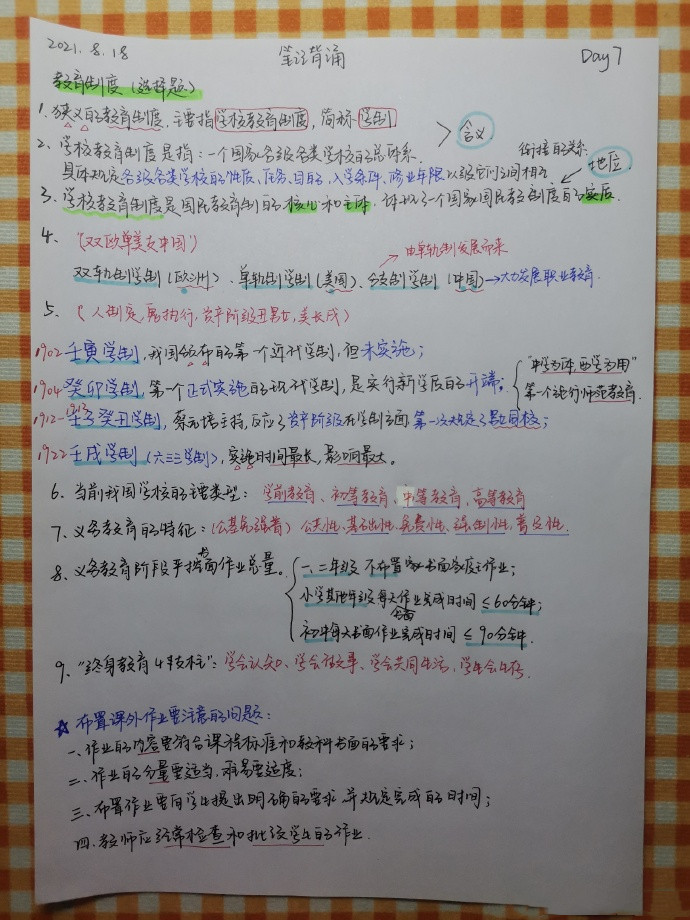 2021.8.18 笔记背诵 Day 7
教育制度(选择题)
1. 狭义的教育制度,主要指学校教育制度,简称学制
2. 学校教育制度是指:一个国家各级各类学校的总体系. > 含义
具体规定各级各类学校的性质、任务、目的、入学条件、修业年限以及它们之间相互 衔接的关系
3. 学校教育制度是国民教育制度的核心和主体,体现了一个国家国民教育制度的实质. 地位
4. "(双欧单美支中国)"
由单轨制发展而来
双轨制学制(欧洲)、单轨制学制(美国)、分支制学制(中国)→大力发展职业教育.
5. (人制定,癸执行,资产阶级丑男女,美长戌)
1902 壬寅学制,我国颁布的第一个近代学制,但未实施;
1904 癸卯学制,第一个正式实施的现代学制,是实行新学制的开端。 "中学为体,西学为用"
第一个施行师范教育.
1912-1913 壬子癸丑学制,蔡元培主持,反应了资产阶级在学制方面 第一次规定了男女同校;
1922 壬戌学制(六三三学制),实施时间最长,影响最大。
6. 当前我国学校的主要类型: 学前教育、初等教育、中等教育、高等教育
7. 义务教育的特征:(公基免强普) 公共性、基础性、免费性、强制性、普及性.
8. 义务教育阶段平均书面作业总量。 一、二年级 不布置家庭书面作业;
小学其他年级每天书面作业完成时间 ≤60分钟;
初中每天书面作业完成时间 ≤90分钟.
9. "终身教育4支柱":学会认知、学会做事、学会共同生活、学会生存.
☆ 布置课外作业要注意的问题:
一、作业的内容要符合课程标准和教科书的要求;
二、作业的分量要适当,难易要适度;
三、布置作业要向学生提出明确的要求,并规定完成的时间;
四、教师应经常检查和批改学生的作业.